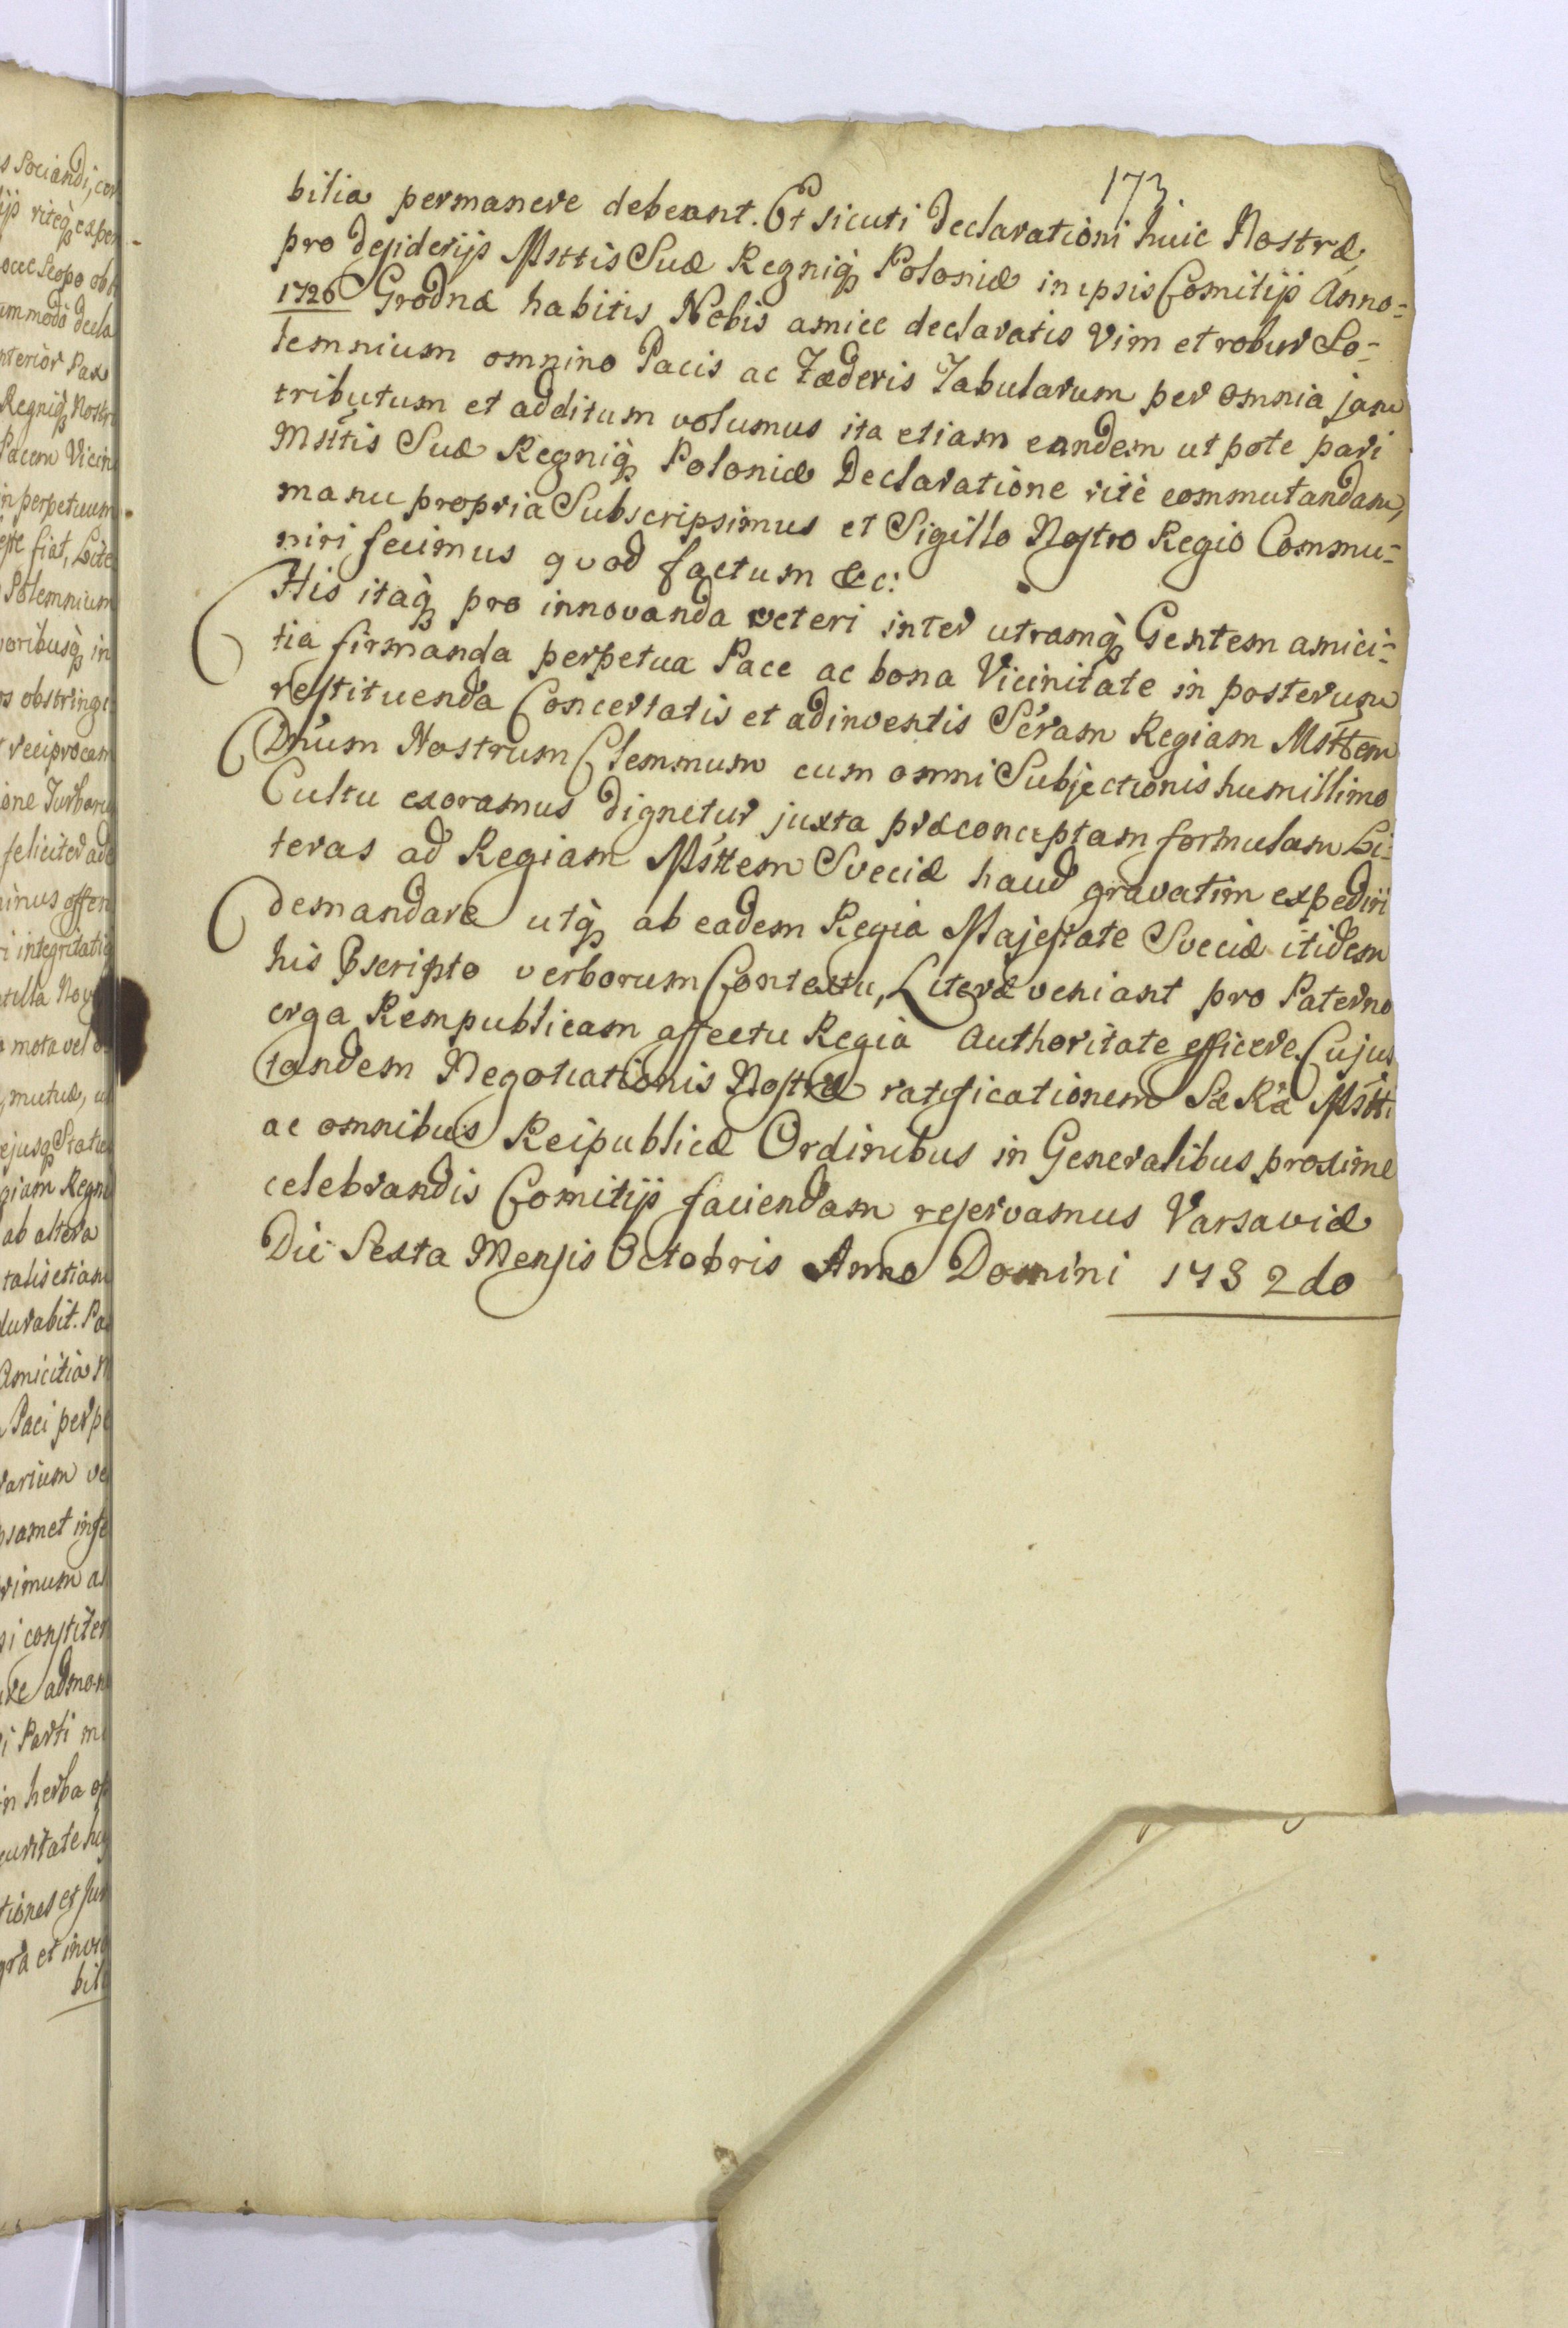 173
bilia permanere debeant. Et sicuti Declarationi huic Nostræ,
pro desiderijs Msttis Suæ Regniq; Poloniæ in ipsis Comitijs Anno-
1726 Grodnæ habitis Nobis amice declaratis Vim et robur So-
lemnium omnino Pacis ac Fæderis Tabularum per omnia jam
tributum et additum volumus ita etiam eandem ut pote pari
Msttis Suæ Regniq; Poloniæ Declaratione ritè commutandam,
manu propria Subscripsimus et Sigillo Nostro Regio Commu-
niri fecimus quod factum &c:
His itaq; pro innovanda veteri inter utramq; Gentem amici-
tia firmanda perpetua Pace ac bona Vicinitate in posterum
restituenda Concertatis et adinventis Sèram Regiam Msttem
Dnum Nostrum Clemmum cum omni Subjectionis humillimo
Cultu exoramus dignetur juxta præconceptam formulam Li-
teras ad Regiam Msttem Sveciæ haud gravatim expediri
demandare utq; ab eadem Regia Majestate Sveciæ itidem
his Pscripto verborum Contextu, Literæ veniant pro Paterno
erga Rempublicam affectu Regia Authoritate efficere. Cujus
tandem Negotiationis Nostræ ratificationem Sæ Ræ Mstti
ac omnibus Reipublicæ Ordinibus in Generalibus proxime
celebrandis Comitijs faciendam reservamus Varsaviæ
Die Sexta Mensis Octobris Anno Domini 1732do
s Sociandi, con
ijs riteq; expe
Scopo ob
ummodo decla
nterior Pax
Regniq; Nostri
Pacem Vicin
in perpetuum
esse fiat, Lite
Solemnium
oribusq; in
os obstringi
reciprocam
ione Turbaru
feliciter ad
minus offen
i integritati
mota vel
mutuæ, cu
ejusq; Statu
giam Regn
ab altera
talis etiam
durabit. Pa
Amicitia N
Paci perpe
varium ve
psamet inte
rimum a
si constiter
admon
i Parti m
in herba o
curitate hu
tiones et Jur
gra et invio
bili